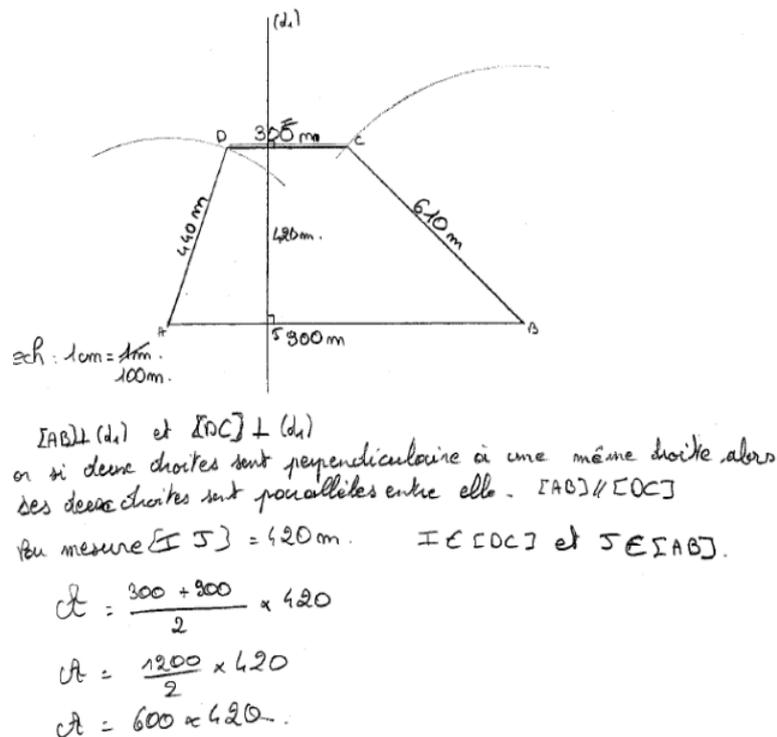 (d₁)
D 300 m C
440 m
420m.
610 m
A J 900 m B
ech : 1cm = 1m.
100m.
[AB]⊥(d₁) et [DC] ⊥ (d₁)
or si deux droites sont perpendiculaire à une même droite alors
ses deux droites sont parallèles entre elle. [AB]//[DC]
mesure [I J] = 420 m. I ∈ [DC] et J ∈ [AB].
A = 300 + 900 / 2 × 420
A = 1200 / 2 × 420
A = 600 × 420.